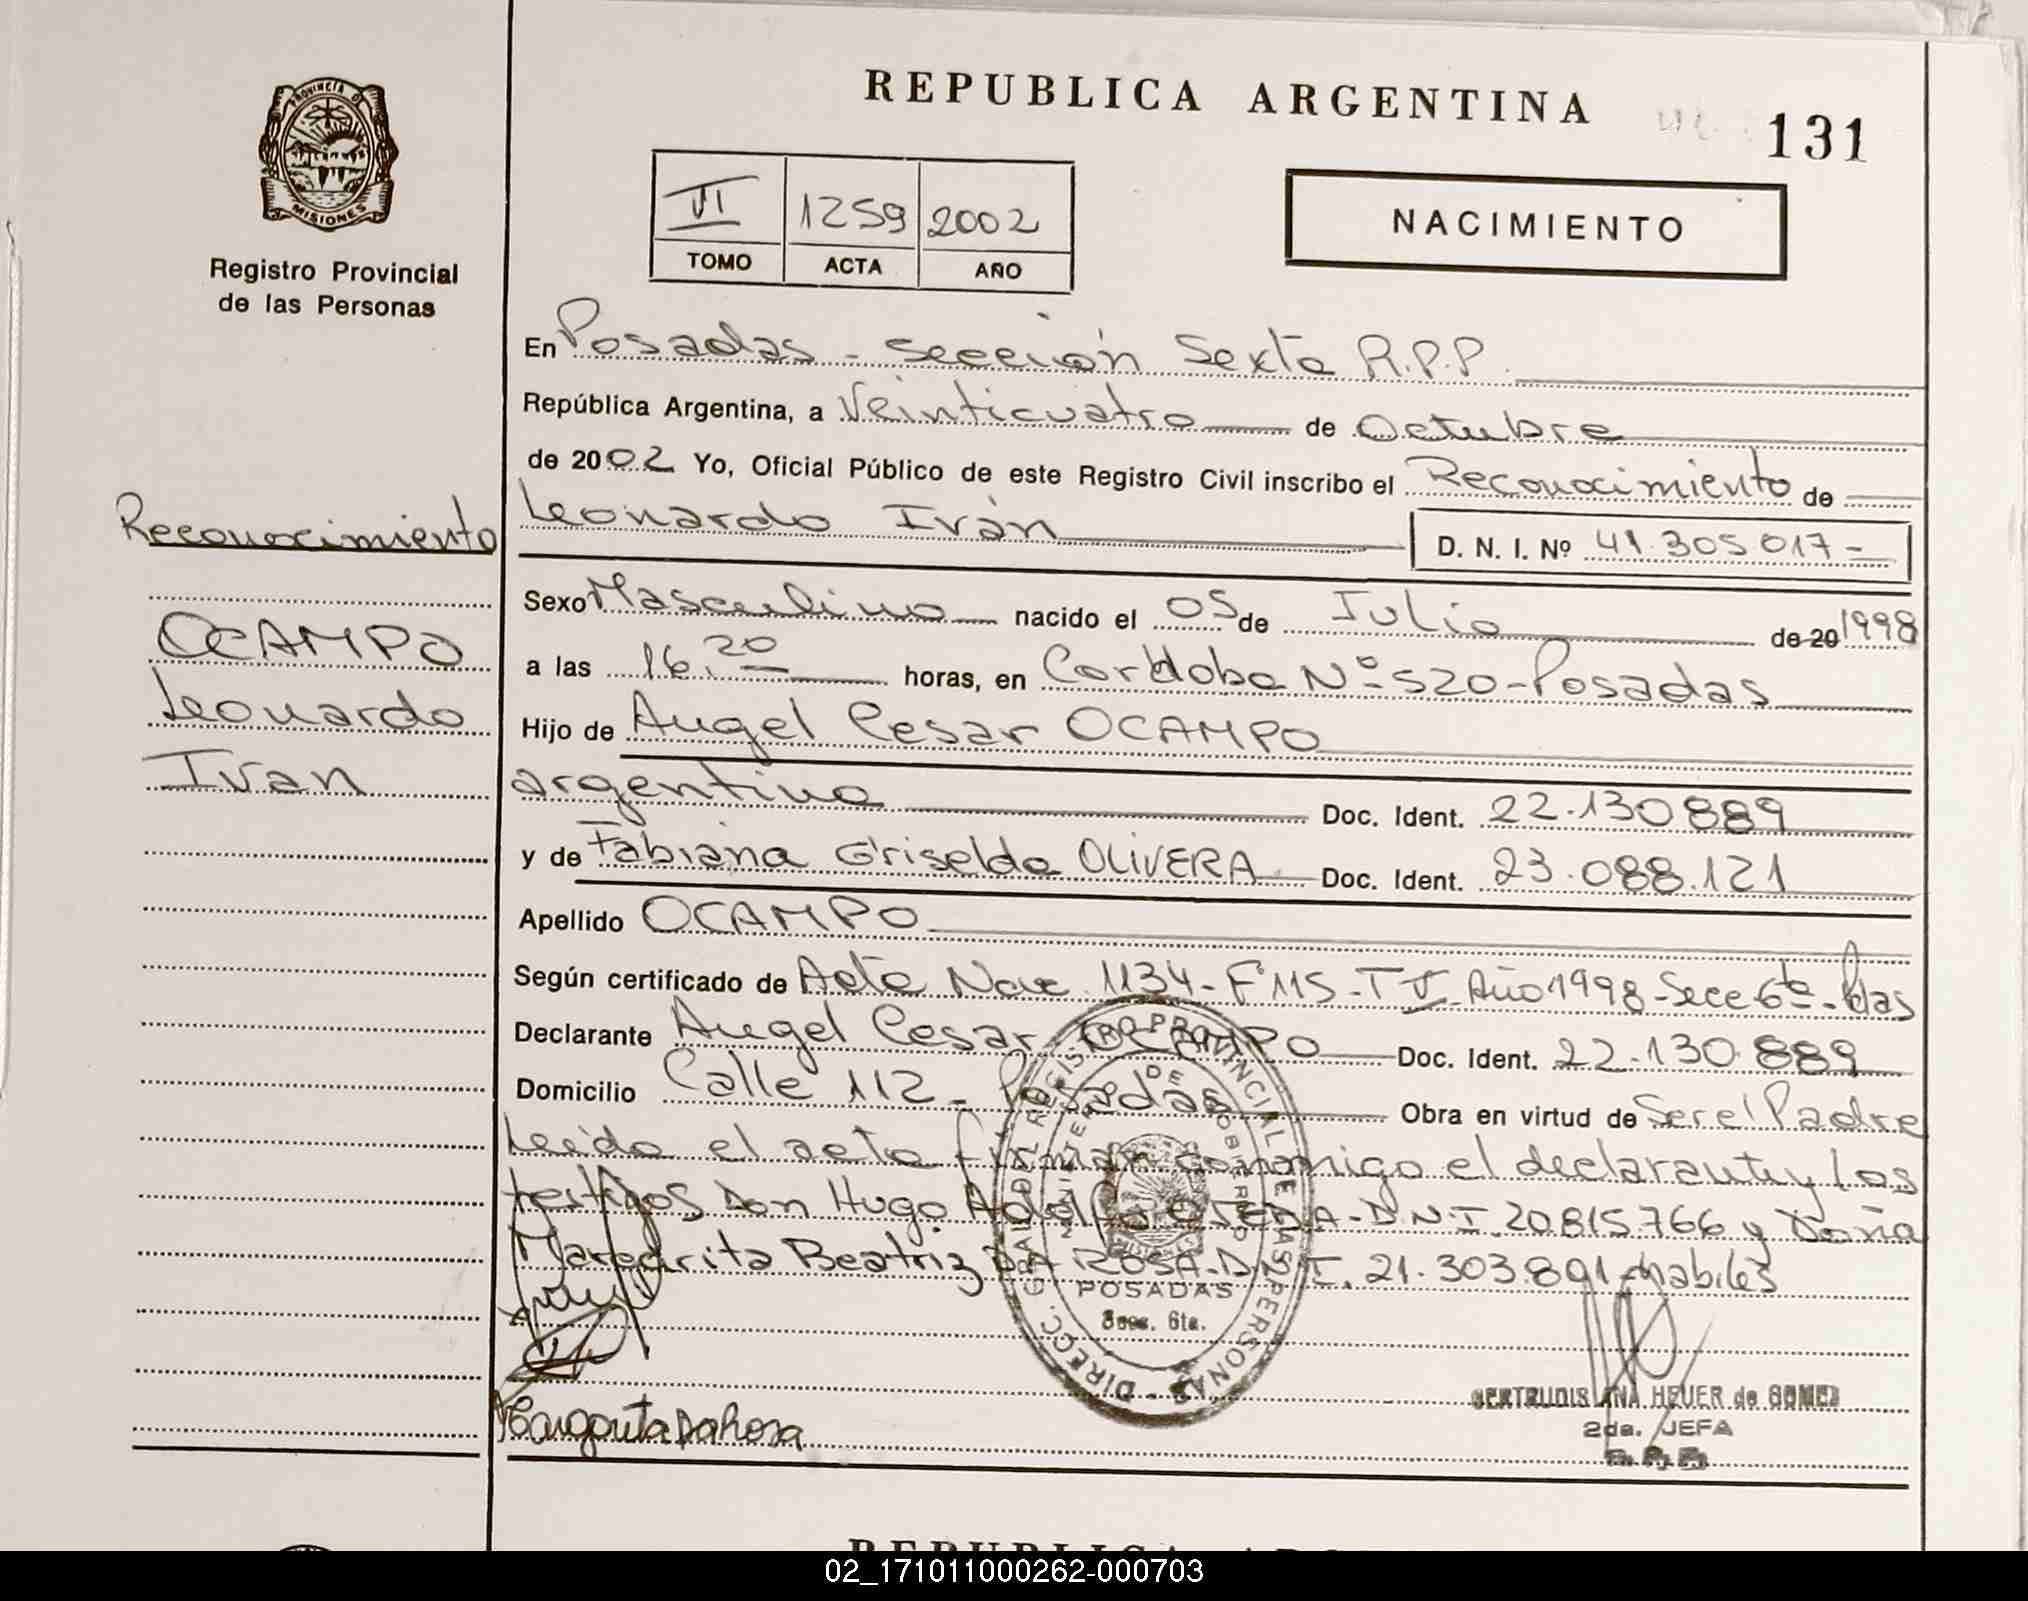 REPUBLICA ARGENTINA
131
PROVINCIA DE MISIONES
Registro Provincial
de las Personas
VI 1259 2002
TOMO ACTA AÑO
NACIMIENTO
En Posadas - Sección Sexta R.P.P.
República Argentina, a Veinticuatro de Octubre
de 2002 Yo, Oficial Público de este Registro Civil inscribo el Reconocimiento de
Leonardo Iván D. N. I. Nº 41.305.017-
Sexo Masculino nacido el 05 de Julio de 20 1998
a las 16.20 horas, en Cordoba Nº 520 - Posadas
Hijo de Angel Cesar OCAMPO
argentino Doc. Ident. 22.130.889
y de Fabiana Griselda OLIVERA Doc. Ident. 23.088.121
Apellido OCAMPO
Según certificado de Acta Nac. 1134 - Fº 115 - T V - Año 1998 - Secc 6ta - Pdas
Declarante Angel Cesar OCAMPO Doc. Ident. 22.130.889
Domicilio Calle 112 - Posadas Obra en virtud de Ser el Padre
Leido el acta firman conmigo el declarante y los
testigos Don Hugo Adolfo OJEDA - D.N.I. 20.815.766 y Doña
Margarita Beatriz DA ROSA - D.N.I. 21.303.891 habiles
Reconocimiento
OCAMPO
Leonardo
Ivan
DIRECC. GRAL. DEL REGISTRO PROVINCIAL DE LAS PERSONAS
MINISTERIO DE GOBIERNO
MISIONES
POSADAS
Secc. 6ta.
Margarita Da Rosa
GERTRUDIS ANA HEUER de GOMEZ
2da. JEFA
R.P.P.
02_171011000262-000703